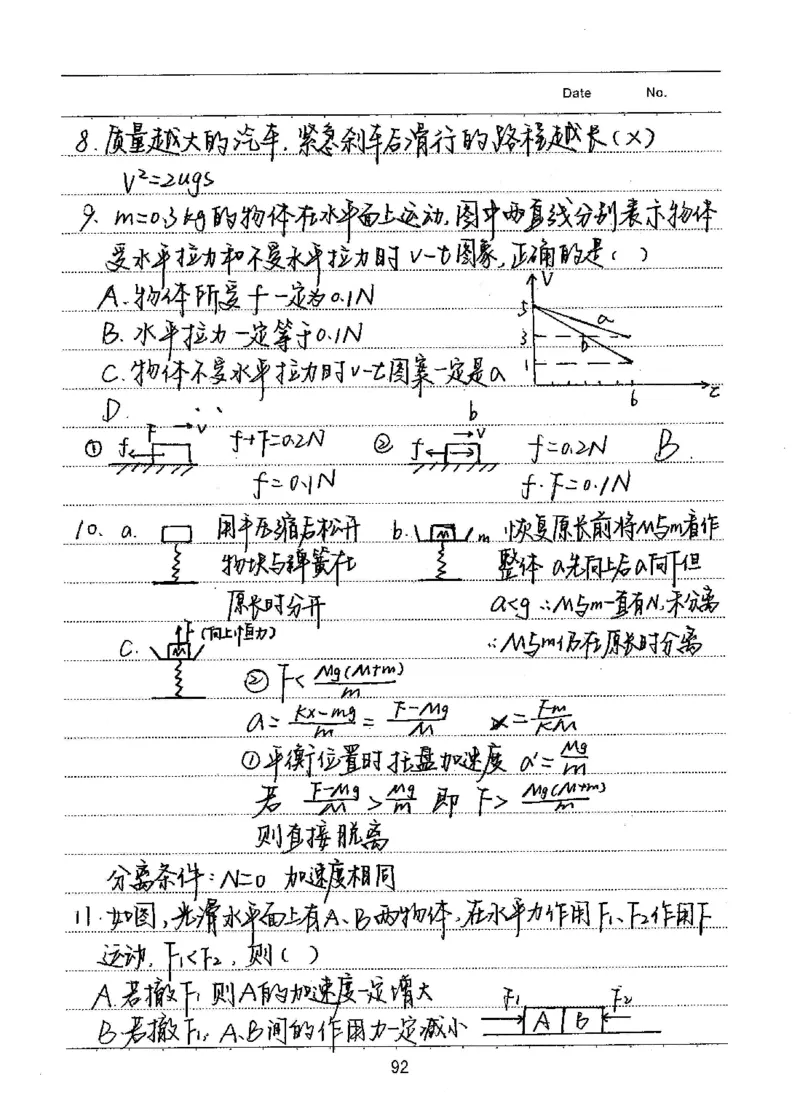 Date No.
8. 质量越大的汽车,紧急刹车后滑行的路程越长(×)
V²=2ugs
9. m=0.3kg的物体在水平面上运动,图中两直线分别表示物体
受水平拉力和不受水平拉力时v-t图象,正确的是( )
A.物体所受f一定为0.1N
B.水平拉力一定等于0.1N
C.物体不受水平拉力时v-t图案一定是a
D. 、、 b
V
5
3
1
a
b
6
t
① f F V f+F=0.2N ② f V f=0.2N B.
f=0.1N f-F=0.1N
10. a. 用手压缩后松开 b. M m 恢复原长前将M与m看作
物块与弹簧在 整体 a先向上后a向下但
原长时分开 a<g ∴M与m一直有N,未分离
C. F(向上恒力) M ∴M与m仍在原长时分离
② F< Mg(M+m)/m
a= (kx-mg)/m = (F-Mg)/M x= Fm/KM
①平衡位置时托盘加速度 a'= Mg/m
若 (F-Mg)/M > Mg/m 即 F> Mg(M+m)/m
则直接脱离
分离条件:N=0 加速度相同
11.如图,光滑水平面上有A、B两物体,在水平力作用F₁、F₂作用下
运动,F₁<F₂,则( )
A.若撤F₁则A的加速度一定增大
B.若撤F₁,A、B间的作用力一定减小
F₁ A B F₂
92